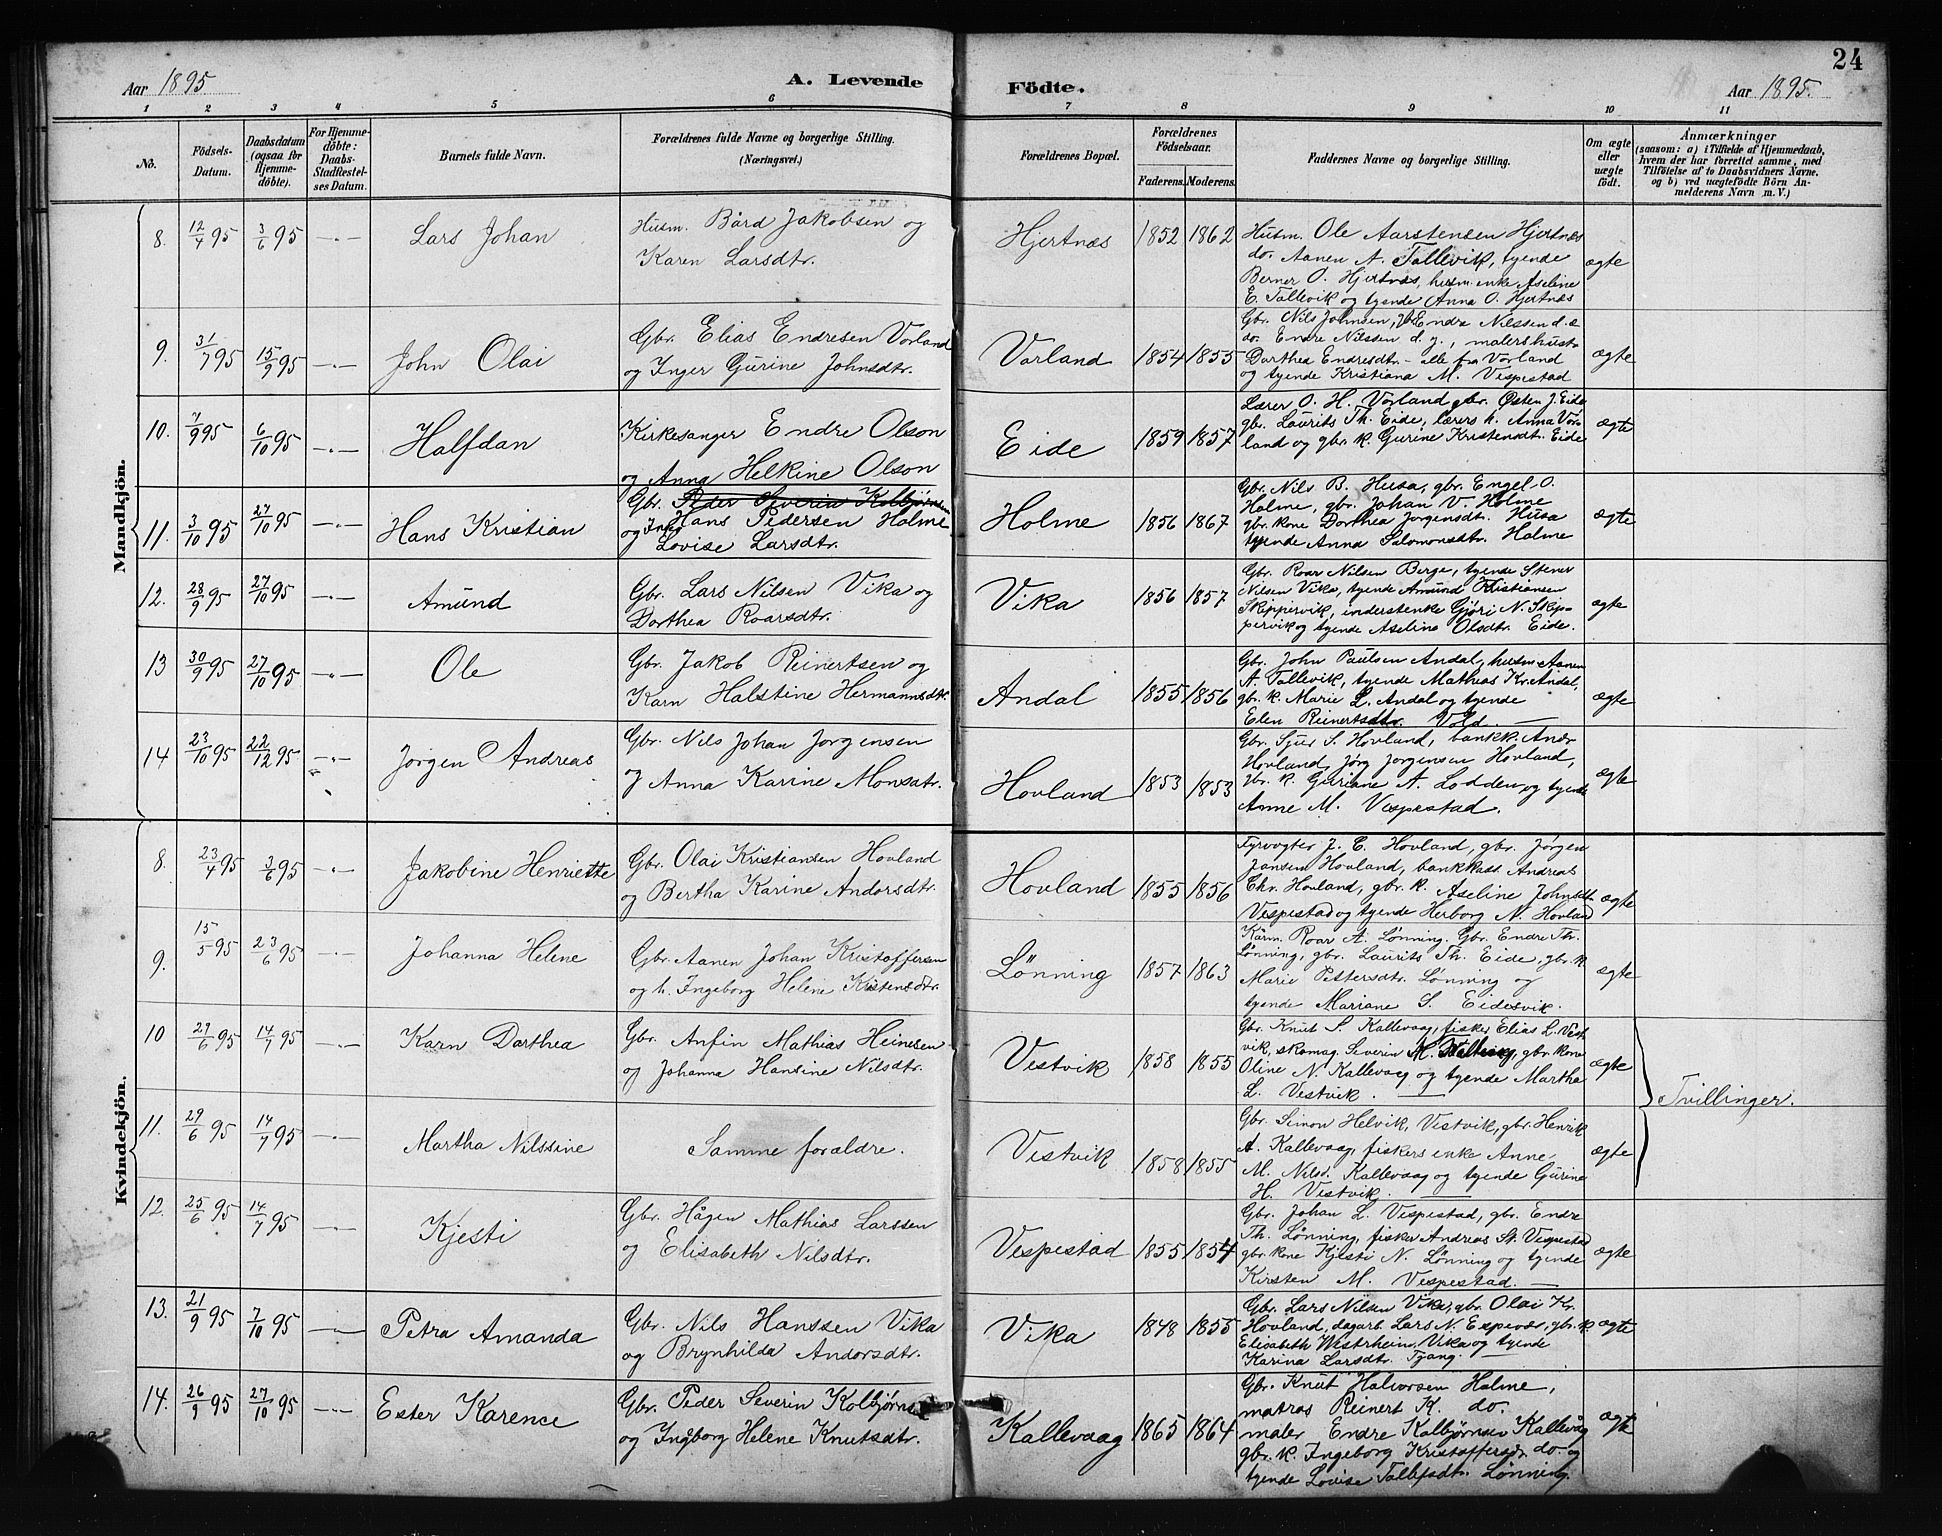 24
Aar 1895
A. Levende
Födte.
Aar 1895.
1 2 3 4 5 6 7 8 9 10 11
No.
Födsels-
Datum.
Daabsdatum
(ogsaa for
Hjemme-
döbte).
For Hjemme-
döbte:
Daabs-
Stadfæstel-
ses Datum.
Barnets fulde Navn.
Forældrenes fulde Navne og borgerlige Stilling.
(Næringsvei.)
Forældrenes Bopæl.
Forældrenes
Födselsaar.
Faderens. Moderens.
Faddernes Navne og borgerlige Stilling.
Om ægte
eller
uægte
födt.
Anmærkninger
(saasom: a) i Tilfælde af Hjemmedaab,
hvem der har forrettet samme, med
Tilföielse af to Daabsvidners Navne.
og b) ved uægtefödte Börn An-
melderens Navn m. V.)
Mandkjön.
8. 12/4 95 3/6 95 — „ — Lars Johan
Husm. Bård Jakobsen og
Karen Larsdtr.
Hjertnæs 1852 1862
Husm. Ole Aarstensen Hjertnæs
do. Aanen A. Tallevik, tyende
Berner O. Hjertnæs, husm. enke Aseline
E. Tallevik og tyende Anna O. Hjertnæs
ægte
9. 31/7 95 15/9 95 — „ — John Olai
Gbr. Elias Endresen Vorland
og Inger Gurine Johnsdtr.
Vorland 1854 1855
Gbr. Nils Johnsen, Endre Nilssen d. e.
do. Endre Nilsen d. y., malershustr
Dorthea Endresdtr – alle fra Vorland
og tyende Kristiana M. Vespestad
ægte
10. 7/9 95 6/10 95 — „ — Halfdan
Kirkesanger Endre Olson
og Anna Helkine Olson
Eide 1859 1857
Lærer O. H. Vorland gbr. Østen J. Eide
gbr. Laurits Th. Eide, lærers k. Anna Vor-
land og gbr. k. Gurine Kristensdtr. Eide
ægte
11. 3/10 95 27/10 95 — „ — Hans Kristian
Gbr. Peder Severin Kolbjørnsen
Hans Pedersen Holme
og Inger Lovise Larsdtr.
Holme 1856 1867
Gbr. Nils B. Husa, gbr. Engel O.
Holme, gbr. Johan V. Holme
gbr. kone Dorthea Jorgensdtr. Husa
tyende Anna Salomonsdtr. Holme
ægte
12. 28/9 95 27/10 95 — „ — Amund
Gbr. Lars Nilsen Vika og
Dorthea Roarsdtr.
Vika 1856 1857
Gbr. Roar Nilsen Berge, tyende Stener
Nilsen Vika, tyende Amund Kristiansen
Skippervik, inderstenke Gjøri N. Skip-
pervik og tyende Aseline Olsdtr. Eide.
ægte
13 30/9 95 27/10 95 — „ — Ole
Gbr. Jakob Reinertsen og
Karn Halstine Hermannsdtr.
Andal 1855 1856
Gbr. John Paulsen Andal, husm Aanen
A. Tallevik, tyende Mathias Kr. Andal,
gbr. k. Marie L. Andal og tyende
Elen Reinertsdtr. Vold. —
ægte
14 23/10 95 22/12 95 — „ — Jørgen Andreas
Gbr. Nils Johan Jorgensen
og Anna Karine Monsdtr.
Hovland 1853 1853
Gbr. Sjur S. Hovland, bankk. Andr
Hovland, Jørg Jorgensen Hovland,
gbr. k. Guriane A. Lodden og tyende
Anne M. Vespestad.
ægte
Kvindekjön.
8. 23/4 95 3/6 95 — „ — Jakobine Henriette
Gbr. Olai Kristiansen Hovland
og Bertha Karine Andorsdtr.
Hovland 1855 1856
Fyrvogter J. C. Hovland, gbr. Jørgen
Jansen Hovland, bankkass. Andreas
Chr. Hovland, gbr. k. Aseline Johnsdtr
Vespestad og tyende Herborg N. Hovland
ægte
9. 15/5 95 23/6 95 — „ — Johanna Helene
Gbr. Aanen Johan Kristoffersen
og h. Ingeborg Helene Kristensdtr.
Lønning 1857 1863
Kårm. Roar A. Lønning. Gbr. Endre Th.
Lønning, gbr. Laurits Th. Eide, gbr. k
Marie Pettersdtr. Lønning og
tyende Mariane S. Eidesvik.
ægte
10 29/6 95 14/7 95 — „ — Karn Dorthea
Gbr. Anfin Mathias Heinesen
og Johanna Hansine Nilsdtr.
Vestvik 1858 1855
Gbr. Knut S. Kallevaag, fisker Elias L. Vest
vik, skomag. Severin M. gbr. kone
Oline N. Kallevaag og tyende Martha
L. Vestvik. —
ægte
Tvillinger.
11. 29/6 95 14/7 95 — „ — Martha Nilssine
Samme forældre.
Vestvik 1858 1855
Gbr. Simon Helvik, Vestvik, gbr. Henrik
A. Kallevaag, fiskers enke Anne
M. Nilsd. Kallevaag og tyende Gurine
H. Vestvik. —
ægte
12. 25/6 95 14/7 95 — „ — Kjesti
Gbr. Hågen Mathias Larssen
og Elisabeth Nilsdtr.
Vespestad 1855 1854
Gbr. Johan L. Vespestad, gbr. Endre
Th. Lønning, fisker Andreas St. Vespestad
gbr. kone Kjesti N. Lønning og tyende
Kirsten M. Vespestad. —
ægte
13. 21/9 95 7/10 95 — „ — Petra Amanda
Gbr. Nils Hanssen Vika
og Brynhilda Andorsdtr.
Vika 1848 1855
Gbr. Lars Nilsen Vika, gbr. Olai Kr.
Hovland, dagarb. Lars N. Espevær, gbr. k.
Elisabeth Westrheim, Vika og tyende
Karina Larsdtr. Tjang. —
ægte
14. 26/9 95 27/10 95 — „ — Ester Karence
Gbr. Peder Severin Kolbjørns
og Ingborg Helene Knutsdtr.
Kallevaag 1865 1864
Gbr. Knut Halvorsen Holme,
matros Reinert K. do.
maler Endre Kolbjørnsen Kallevåg
gbr. k. Ingeborg Kristoffersd. do. og
tyende Lovise Tollefsdtr. Lønning.
ægte